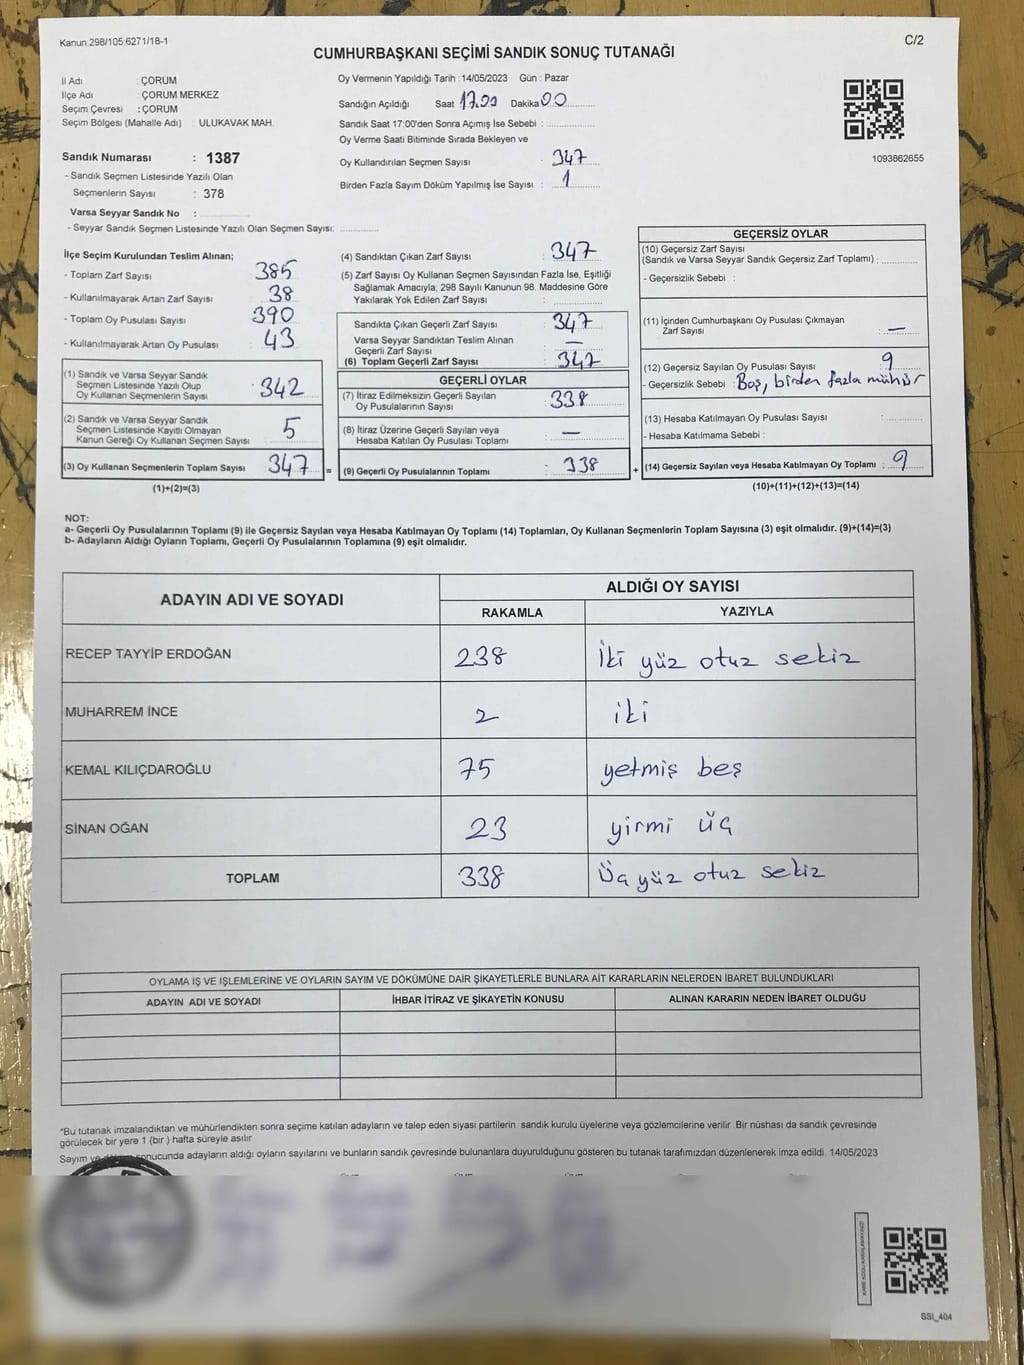 Kanun:298/105 6271/18-1
C/2
CUMHURBAŞKANI SEÇİMİ SANDIK SONUÇ TUTANAĞI
İl Adı : ÇORUM
İlçe Adı : ÇORUM MERKEZ
Seçim Çevresi : ÇORUM
Seçim Bölgesi (Mahalle Adı) : ULUKAVAK MAH.
Sandık Numarası : 1387
- Sandık Seçmen Listesinde Yazılı Olan
Seçmenlerin Sayısı : 378
Varsa Seyyar Sandık No :
- Seyyar Sandık Seçmen Listesinde Yazılı Olan Seçmen Sayısı:
Oy Vermenin Yapıldığı Tarih : 14/05/2023 Gün : Pazar
Sandığın Açıldığı Saat 17.00 Dakika 00
Sandık Saat 17:00'den Sonra Açımış İse Sebebi :
Oy Verme Saati Bitiminde Sırada Bekleyen ve
Oy Kullandırılan Seçmen Sayısı : 347
Birden Fazla Sayım Döküm Yapılmış İse Sayısı : 1
1093862655
İlçe Seçim Kurulundan Teslim Alınan;
- Toplam Zarf Sayısı 385
- Kullanılmayarak Artan Zarf Sayısı 38
- Toplam Oy Pusulası Sayısı 390
- Kullanılmayarak Artan Oy Pusulası 43
(1) Sandık ve Varsa Seyyar Sandık
Seçmen Listesinde Yazılı Olup
Oy Kullanan Seçmenlerin Sayısı : 342
(2) Sandık ve Varsa Seyyar Sandık
Seçmen Listesinde Kayıtlı Olmayan
Kanun Gereği Oy Kullanan Seçmen Sayısı 5
(3) Oy Kullanan Seçmenlerin Toplam Sayısı : 347 =
(1)+(2)=(3)
(4) Sandıktan Çıkan Zarf Sayısı : 347
(5) Zarf Sayısı Oy Kullanan Seçmen Sayısından Fazla İse, Eşitliği
Sağlamak Amacıyla, 298 Sayılı Kanunun 98. Maddesine Göre
Yakılarak Yok Edilen Zarf Sayısı :
Sandıkta Çıkan Geçerli Zarf Sayısı : 347
Varsa Seyyar Sandıktan Teslim Alınan
Geçerli Zarf Sayısı : —
(6) Toplam Geçerli Zarf Sayısı : 347
GEÇERLİ OYLAR
(7) İtiraz Edilmeksizin Geçerli Sayılan
Oy Pusulalarının Sayısı : 338
(8) İtiraz Üzerine Geçerli Sayılan veya
Hesaba Katılan Oy Pusulası Toplamı : —
(9) Geçerli Oy Pusulalarının Toplamı : 338 +
GEÇERSİZ OYLAR
(10) Geçersiz Zarf Sayısı
(Sandık ve Varsa Seyyar Sandık Geçersiz Zarf Toplamı) :
- Geçersizlik Sebebi :
(11) İçinden Cumhurbaşkanı Oy Pusulası Çıkmayan
Zarf Sayısı : —
(12) Geçersiz Sayılan Oy Pusulası Sayısı : 9
- Geçersizlik Sebebi : Boş, birden fazla mühür
(13) Hesaba Katılmayan Oy Pusulası Sayısı :
- Hesaba Katılmama Sebebi :
(14) Geçersiz Sayılan veya Hesaba Katılmayan Oy Toplamı : 9
(10)+(11)+(12)+(13)=(14)
NOT:
a- Geçerli Oy Pusulalarının Toplamı (9) ile Geçersiz Sayılan veya Hesaba Katılmayan Oy Toplamı (14) Toplamları, Oy Kullanan Seçmenlerin Toplam Sayısına (3) eşit olmalıdır. (9)+(14)=(3)
b- Adayların Aldığı Oyların Toplamı, Geçerli Oy Pusulalarının Toplamına (9) eşit olmalıdır.
ADAYIN ADI VE SOYADI
ALDIĞI OY SAYISI
RAKAMLA YAZIYLA
RECEP TAYYİP ERDOĞAN 238 İki yüz otuz sekiz
MUHARREM İNCE 2 iki
KEMAL KILIÇDAROĞLU 75 yetmiş beş
SİNAN OĞAN 23 yirmi üç
TOPLAM 338 Üç yüz otuz sekiz
OYLAMA İŞ VE İŞLEMLERİNE VE OYLARIN SAYIM VE DÖKÜMÜNE DAİR ŞİKAYETLERLE BUNLARA AİT KARARLARIN NELERDEN İBARET BULUNDUKLARI
ADAYIN ADI VE SOYADI İHBAR İTİRAZ VE ŞİKAYETİN KONUSU ALINAN KARARIN NEDEN İBARET OLDUĞU
*Bu tutanak imzalandıktan ve mühürlendikten sonra seçime katılan adayların ve talep eden siyasi partilerin sandık kurulu üyelerine veya gözlemcilerine verilir. Bir nüshası da sandık çevresinde
görülecek bir yere 1 (bir ) hafta süreyle asılır.
Sayım ve sonucunda adayların aldığı oyların sayılarını ve bunların sandık çevresinde bulunanlara duyurulduğunu gösteren bu tutanak tarafımızdan düzenlenerek imza edildi. 14/05/2023
SSI_404